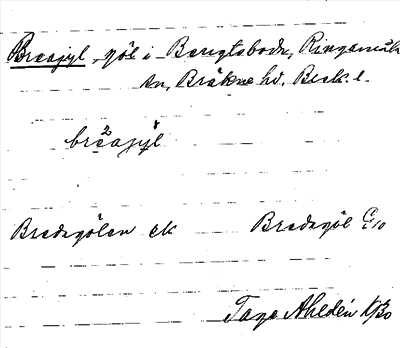 Breagyl, göl i Bengtsboda, Ringamåla
sn, Bräkne hd, Blek. l.
breagyl
Bredegölen ek Bredagöl G10
Tage Ahldén 1930